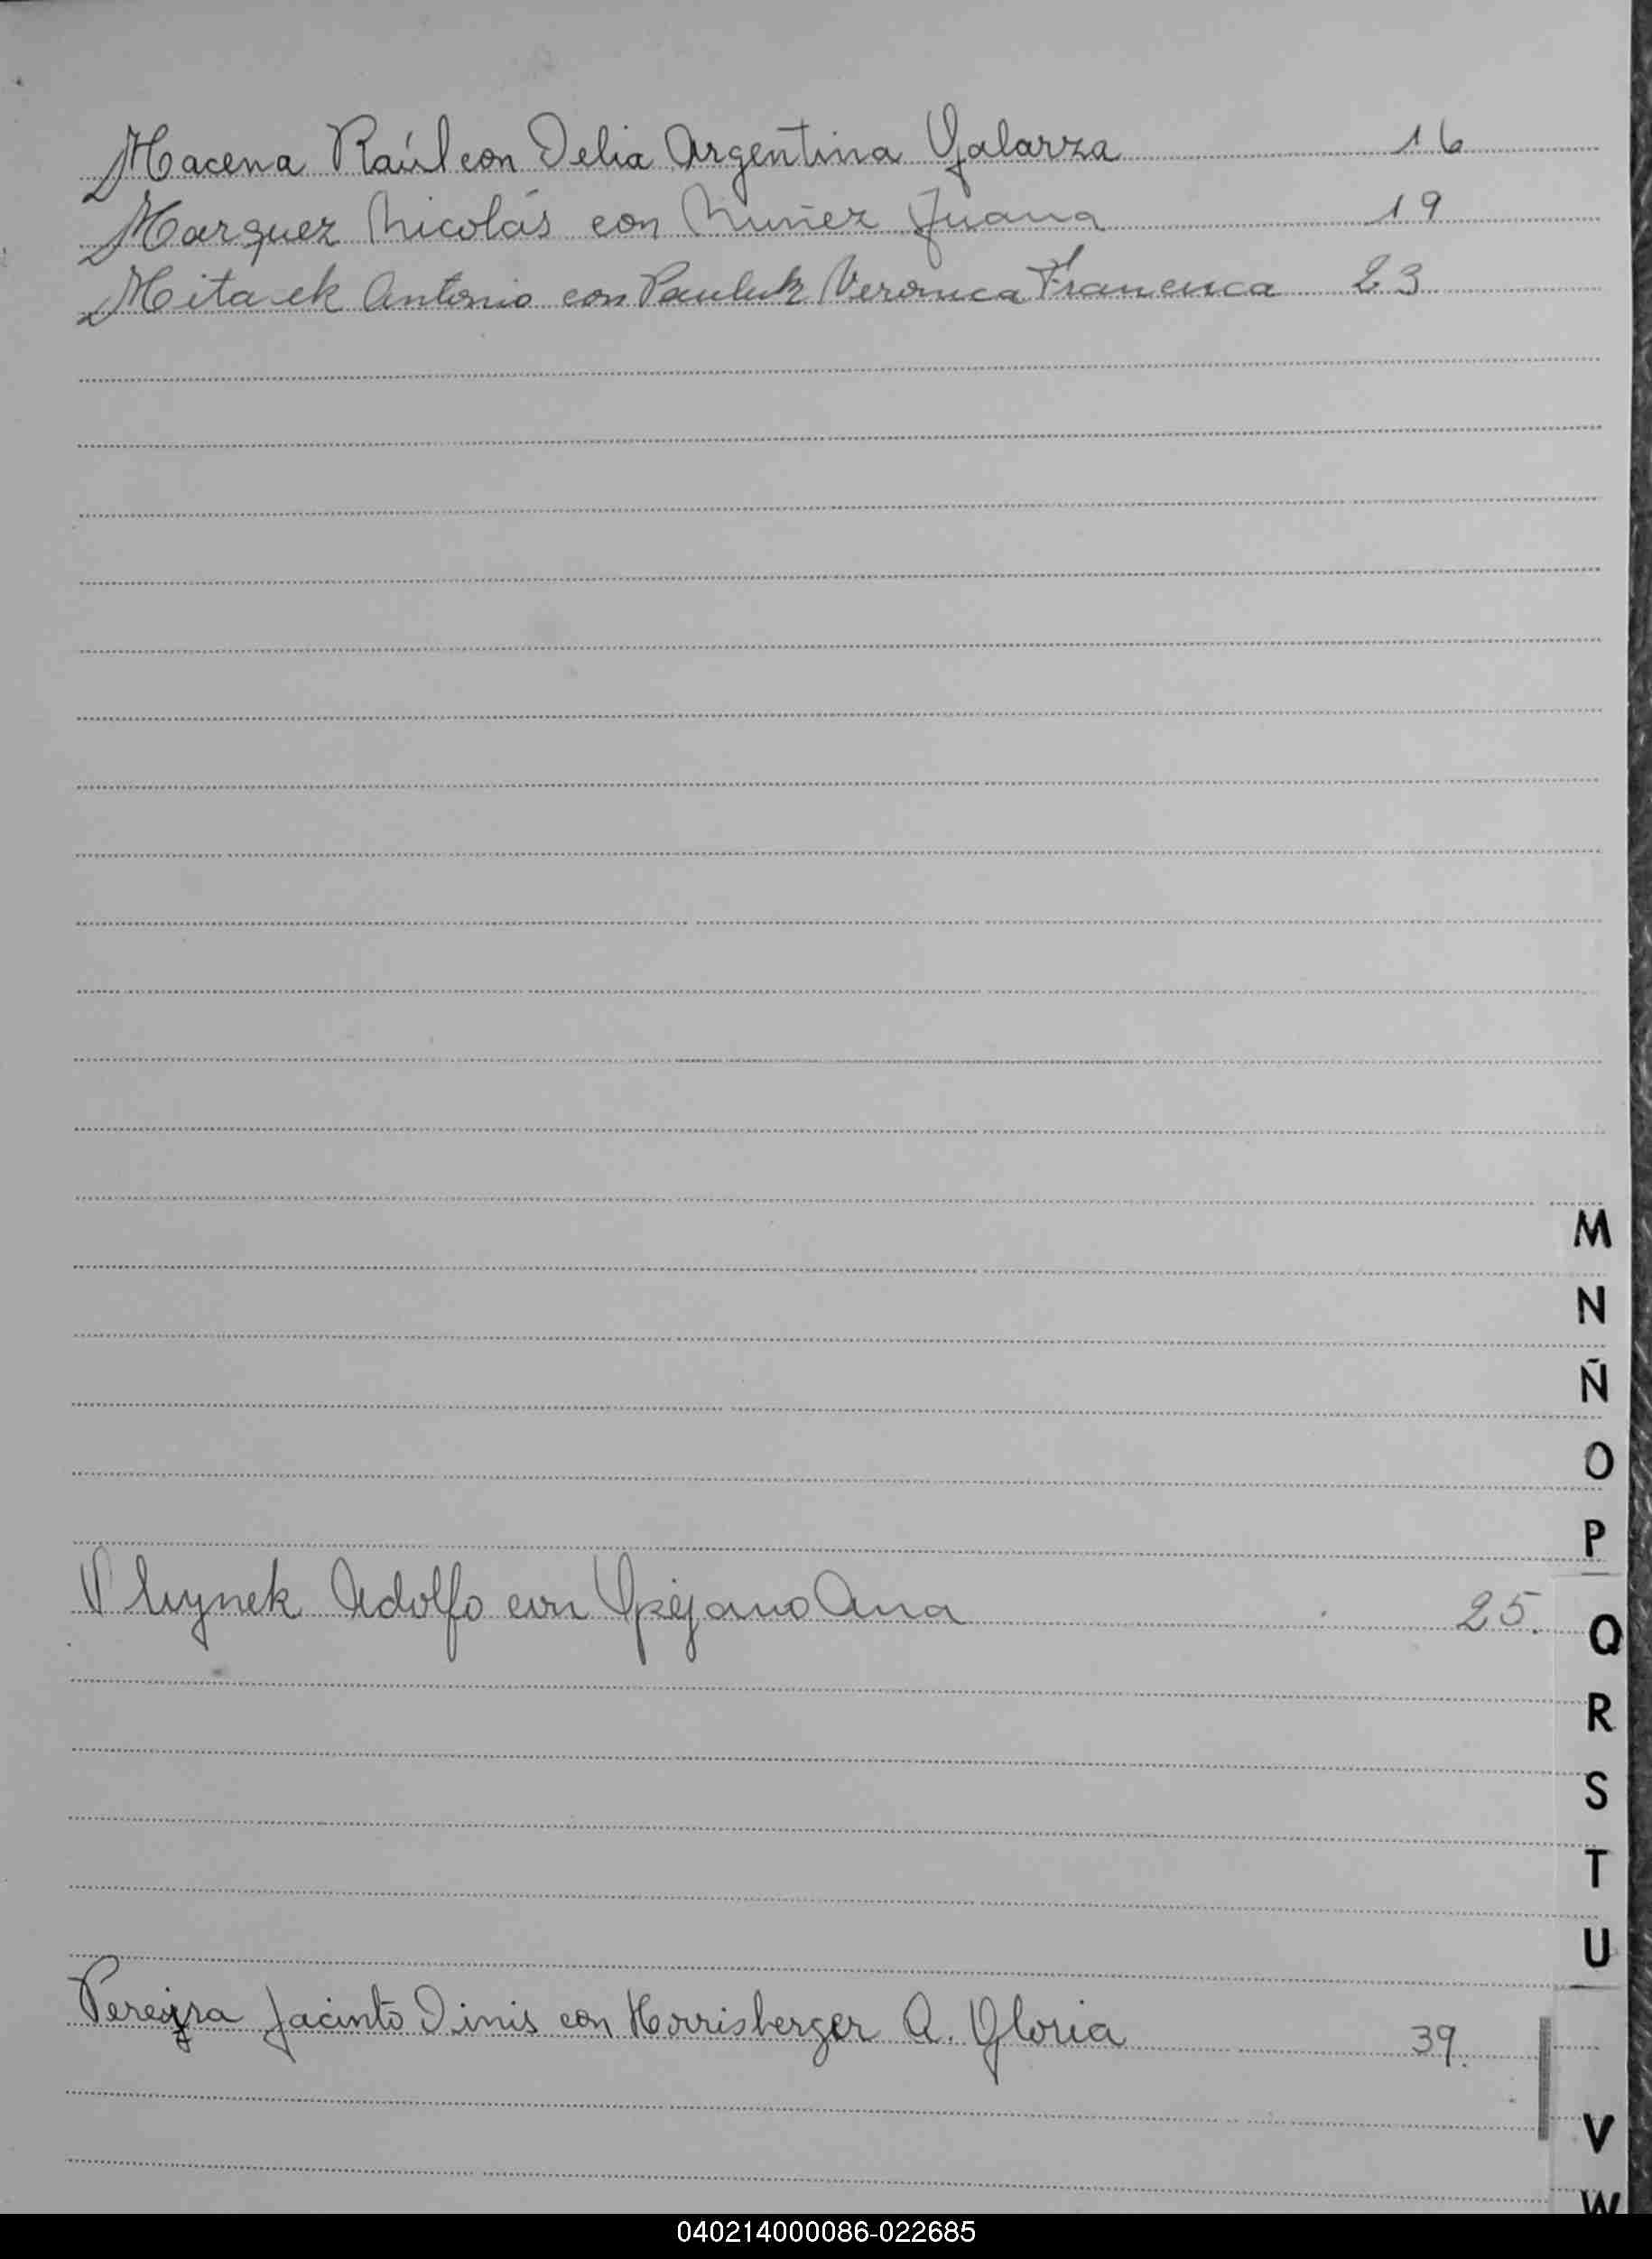 Macena Raúl con Delia Argentina Galarza 16
Marquez Nicolás con Nuñez Juana 19
Mita ek Antonio con Pauluk Veronica Francisca 23
M
N
Ñ
O
P
Adolfo con Ana 25.
Q
R
S
T
U
Pereyra Jacinto Dinis con Horrisberger A. Gloria 39.
V
W
040214000086-022685